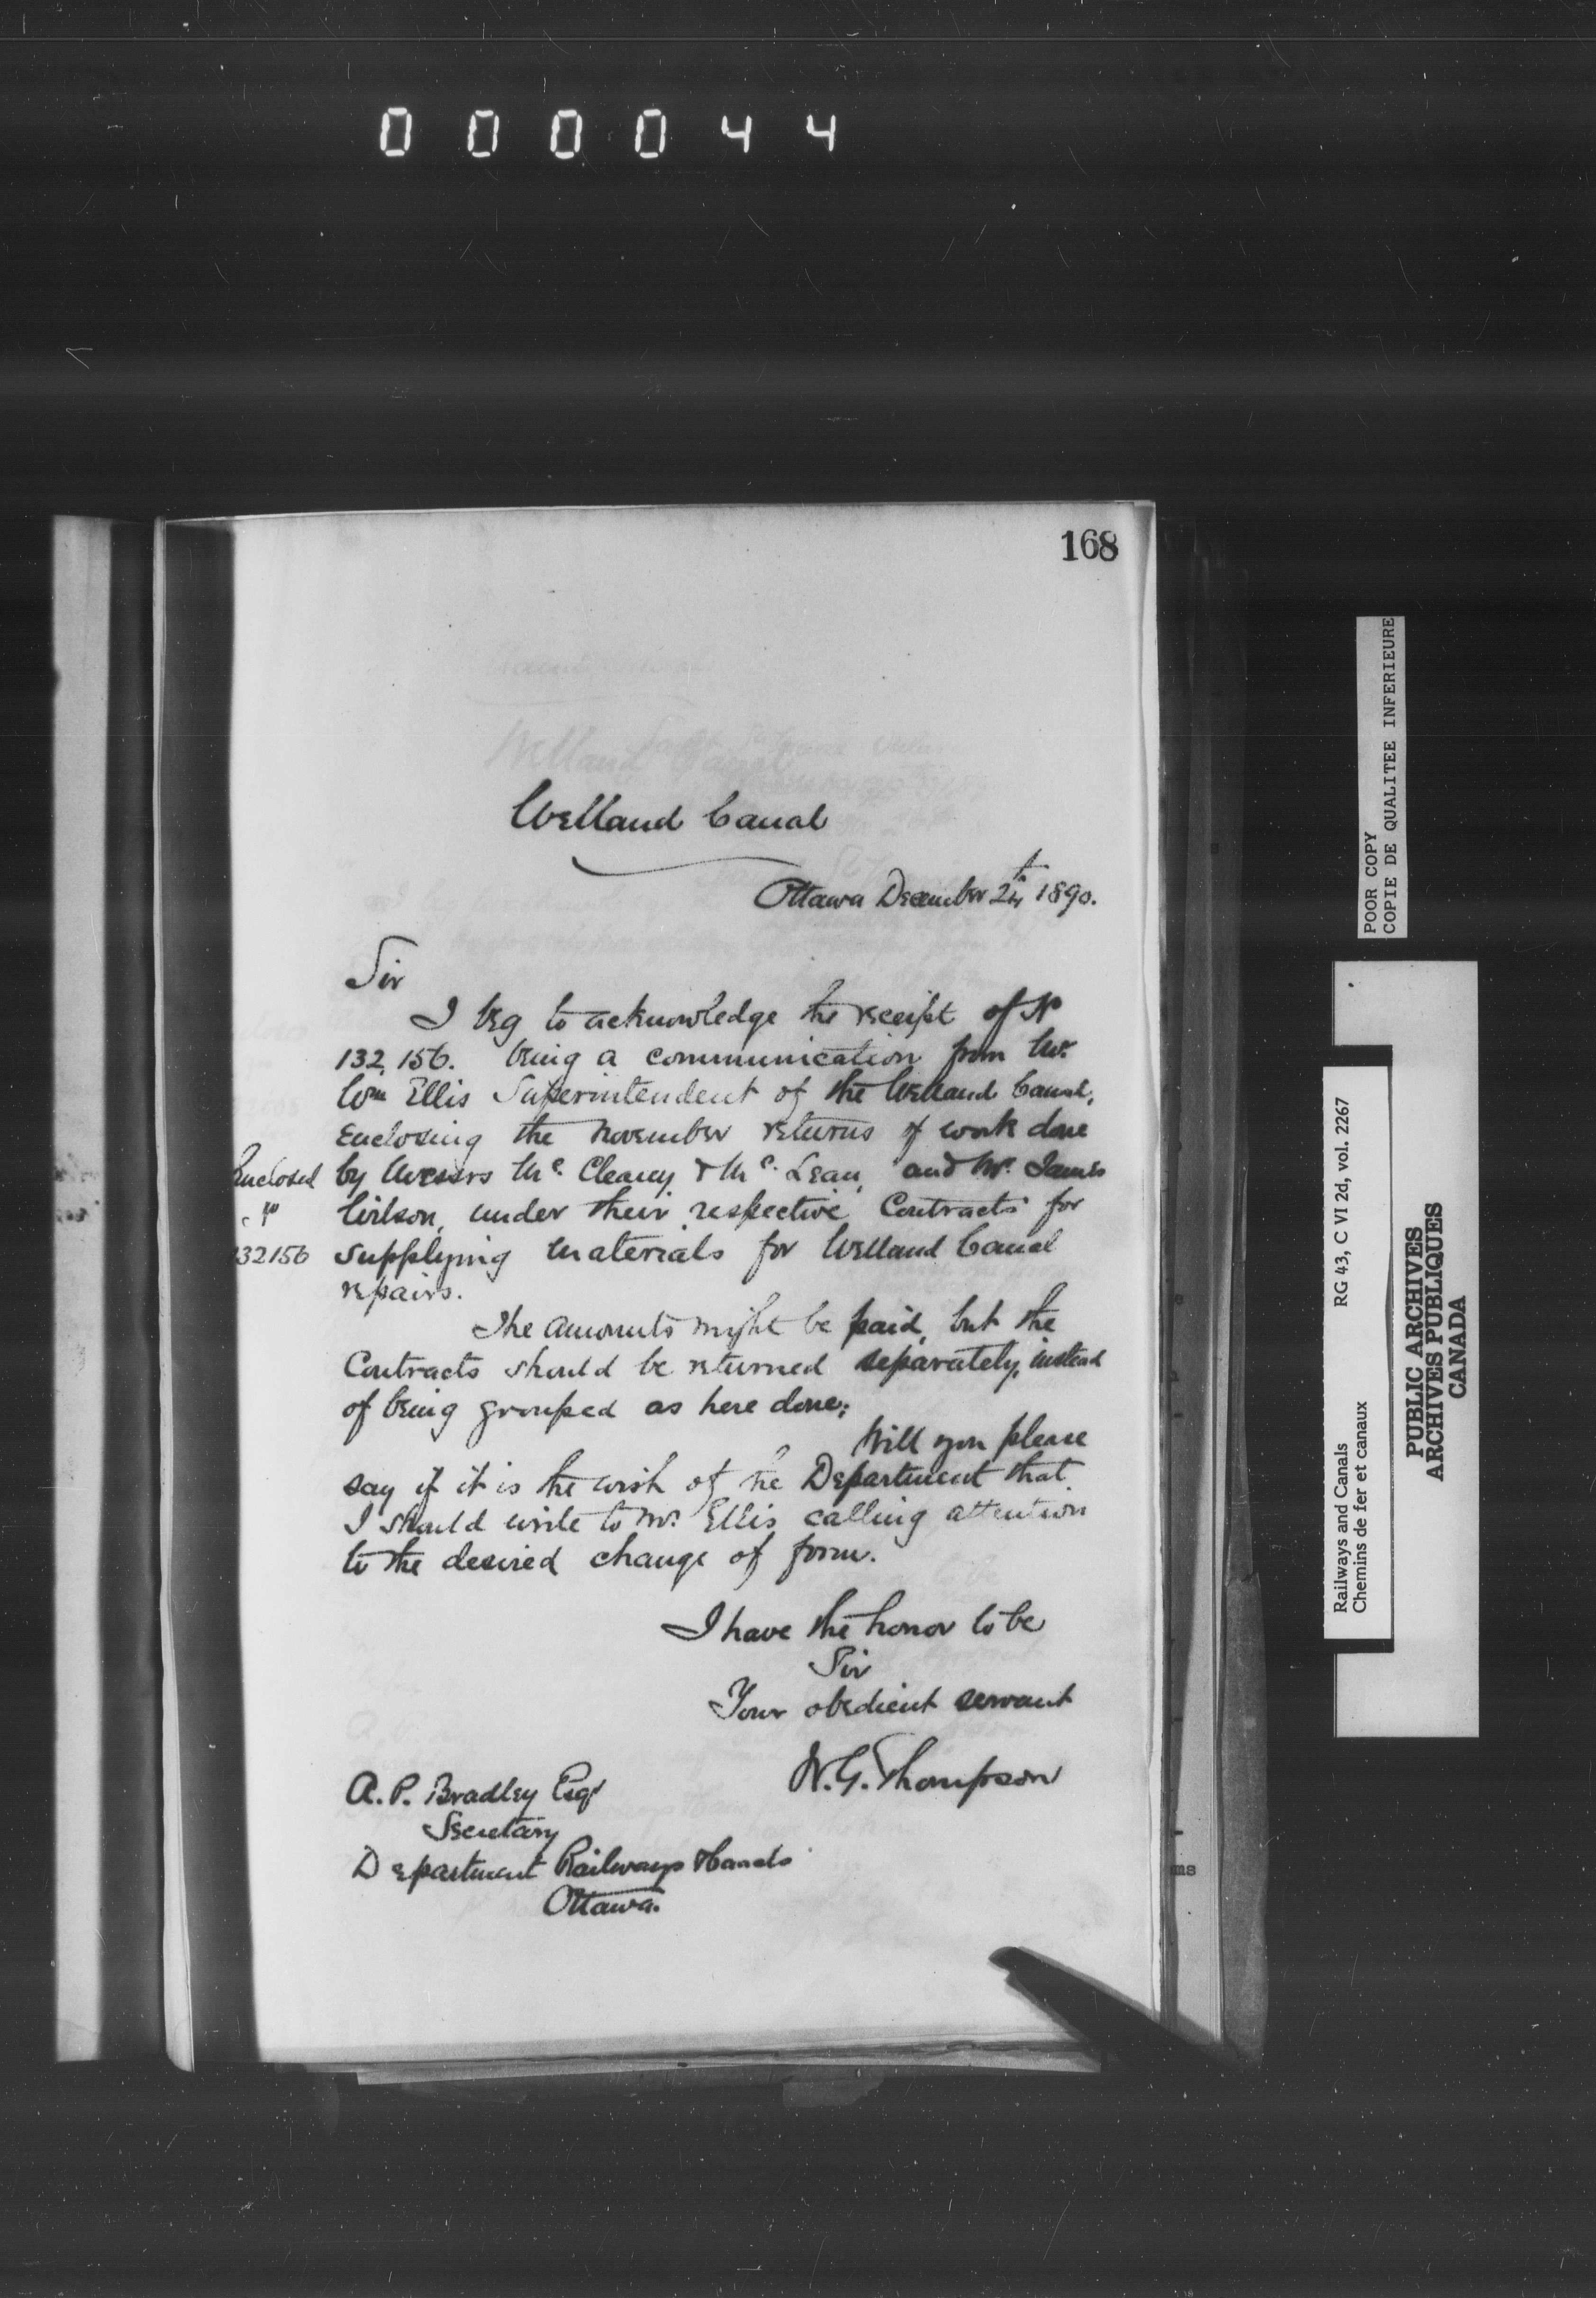 000044
168
Welland Canal
Ottawa December 24th 1890.
Sir
I beg to acknowledge the receipt of No
132,156. being a communication from Mr.
Wm Ellis Superintendent of the Welland Canal,
Enclosing the November returns of work done
Enclosed by Messrs Mc. Cleary & Mc. Lean, and Mr. James
Wilson, under their respective Contracts for
132156 supplying materials for Welland Canal
repairs.
The amounts might be paid, but the
Contracts should be returned separately, instead
of being grouped as here done;
Will you please
say if it is the wish of the Department that
I should write to Mr. Ellis calling attention
to the desired change of form.
I have the honor to be
Sir
Your obedient servant
W. G. Thompson
A. P. Bradley Esqr
Secretary
Department Railways & Canals
Ottawa.
POOR COPY
COPIE DE QUALITEE INFERIEURE
Railways and Canals RG 43, C VI 2d, vol. 2267
Chemins de fer et canaux
PUBLIC ARCHIVES
ARCHIVES PUBLIQUES
CANADA
ms